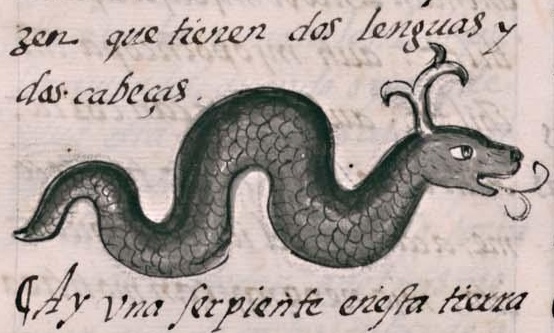 zen que tienen dos lenguas y
dos cabeças.
¶ Ay vna serpiente enesta tierra